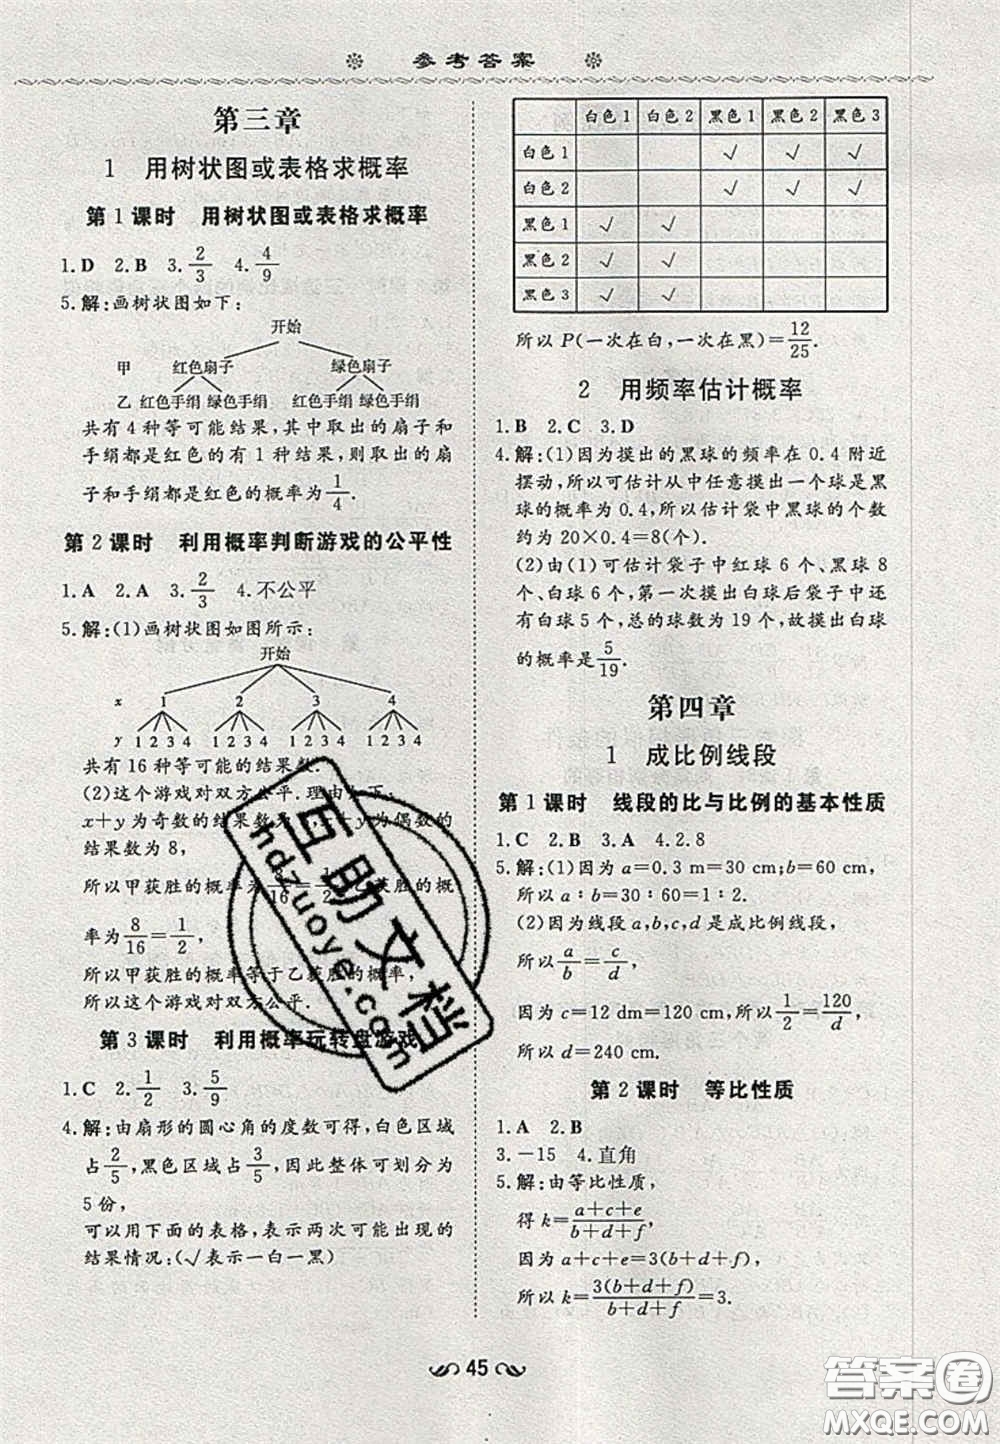 参考答案
第三章
1 用树状图或表格求概率
第1课时 用树状图或表格求概率
1.D 2.B 3.2/3 4.4/9
5.解:画树状图如下:
开始
甲 红色扇子 绿色扇子
乙 红色手绢 绿色手绢 红色手绢 绿色手绢
共有4种等可能结果,其中取出的扇子和
手绢都是红色的有1种结果,则取出的扇
子和手绢都是红色的概率为1/4.
第2课时 利用概率判断游戏的公平性
1.A 2.A 3.2/3 4.不公平
5.解:(1)画树状图如图所示:
开始
x 1 2 3 4
y 1 2 3 4 1 2 3 4 1 2 3 4 1 2 3 4
共有16种等可能的结果数.
(2)这个游戏对双方公平.理由如下:
x+y为奇数的结果数为8,x+y为偶数的
结果数为8,
所以甲获胜的概率=8/16=1/2,乙获胜的概
率为8/16=1/2,
所以甲获胜的概率等于乙获胜的概率,
所以这个游戏对双方公平.
第3课时 利用概率玩转盘游戏
1.C 2.1/2 3.5/9
4.解:由扇形的圆心角的度数可得,白色区域
占2/5,黑色区域占3/5,因此整体可划分为
5份,
可以用下面的表格,表示两次可能出现的
结果情况:(√表示一白一黑)
白色1 白色2 黑色1 黑色2 黑色3
白色1 √ √ √
白色2 √ √ √
黑色1 √ √
黑色2 √ √
黑色3 √ √
所以P(一次在白,一次在黑)=12/25.
2 用频率估计概率
1.B 2.C 3.D
4.解:(1)因为摸出的黑球的频率在0.4附近
摆动,所以可估计从中任意摸出一个球是黑
球的概率为0.4,所以估计袋中黑球的个数
约为20×0.4=8(个).
(2)由(1)可估计袋子中红球6个、黑球8
个、白球6个,第一次摸出白球后袋子中还
有白球5个,总的球数为19个,故摸出白球
的概率是5/19.
第四章
1 成比例线段
第1课时 线段的比与比例的基本性质
1.C 2.B 3.A 4.2.8
5.解:(1)因为a=0.3 m=30 cm;b=60 cm,
所以a:b=30:60=1:2.
(2)因为线段a,b,c,d是成比例线段,
所以a/b=c/d,
因为c=12 dm=120 cm,所以1/2=120/d,
所以d=240 cm.
第2课时 等比性质
1.A 2.B
3.-15 4.直角
5.解:由等比性质,
得k=(a+c+e)/(b+d+f),
因为a+c+e=3(b+d+f),
所以k=3(b+d+f)/(b+d+f)=3.
45
互助文档
hdzuoye.com
答案圈
MXQE.COM